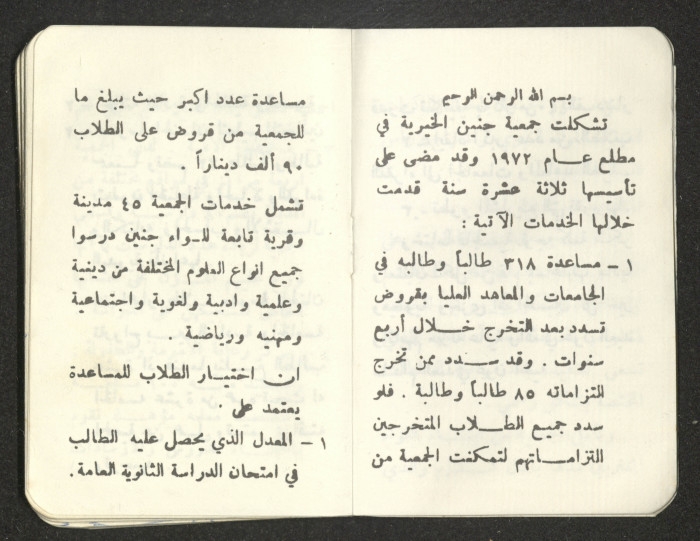 بسم الله الرحمن الرحيم
تشكلت جمعية جنين الخيرية في
مطلع عام ١٩٧٢ وقد مضى على
تأسيسها ثلاثة عشرة سنة قدمت
خلالها الخدمات الآتية :
١ – مساعدة ٣١٨ طالباً وطالبه في
الجامعات والمعاهد العليا بقروض
تسدد بعد التخرج خلال أربع
سنوات . وقد سدد ممن تخرج
التزاماته ٨٥ طالباً وطالبة . فلو
سدد جميع الطلاب المتخرجين
التزاماتهم لتمكنت الجمعية من
مساعدة عدد اكبر حيث يبلغ ما
للجمعية من قروض على الطلاب
٩٠ ألف ديناراً .
تشمل خدمات الجمعية ٤٥ مدينة
وقرية تابعة للواء جنين درسوا
جميع انواع العلوم المختلفة من دينية
وعلمية وادبية ولغوية واجتماعية
ومهنيه ورياضية .
ان اختيار الطلاب للمساعدة
يعتمد على .
١ – المعدل الذي يحصل عليه الطالب
في امتحان الدراسة الثانوية العامة .